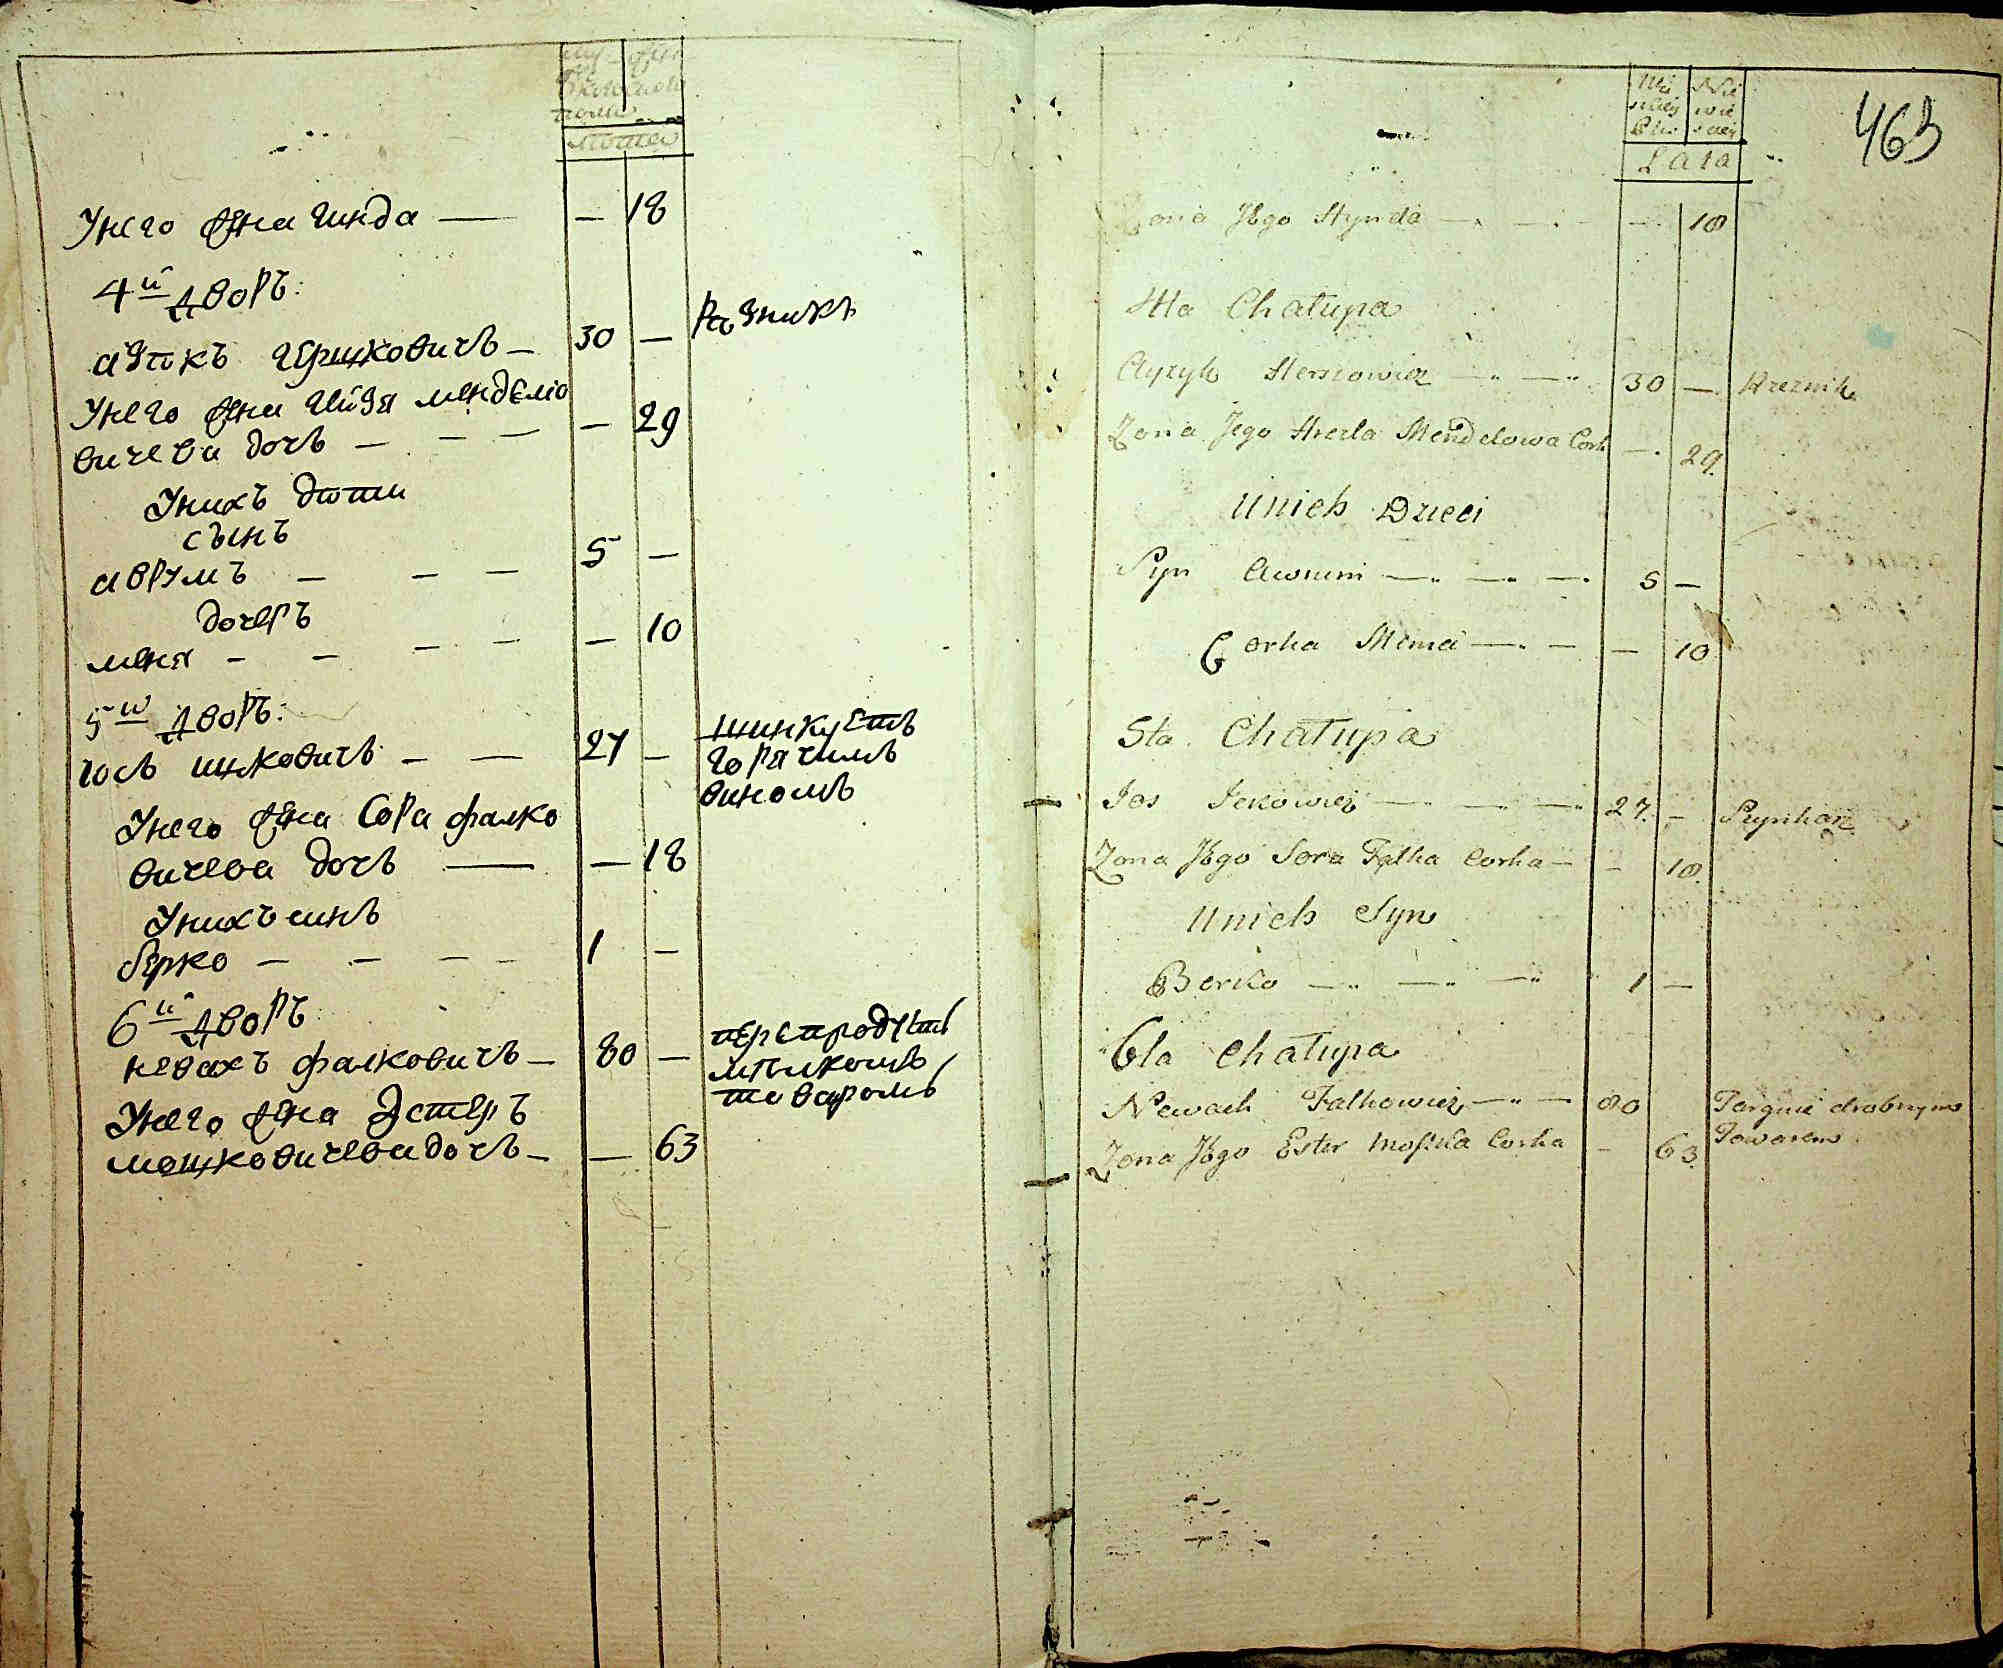 Мужеска
Женска
пола
Лета
Унего жена Гинда — — 18
4й дворъ:
айзикъ гершковичъ — 30 — резникъ
Унего жена гейзя мендело
вичева дочь — — — — 29
Унихъ дѣти
сынъ
аврумъ — — — 5 —
дочеръ
меня — — — — — 10
5й дворъ:
иось ицковичъ — — 27 — шинкуетъ
горячимъ
виномъ
Унего жена Сора фалко
вичева дочь — — 18
Унихъ синъ
берко — — — — 1 —
6й дворъ
невахъ фалковичъ — 80 — перепродуетъ
мѣлкомъ
товаромъ
Унего жена Эстеръ
мошковичева дочь — — 63
463
Lata
Zona Jego Hynda — — — — 18
4ta Chałupa
Ayzyk Herszowicz — — 30 — Rzeznik
Zona Jego Heizla Mendelowa Cork — 29.
Unich Dzieci
Syn Awrum — — — 5 —
Corka Mema — — — 10
5ta Chałupa
Jos Ickowicz — — — 27. — Szynkarz
Zona Jego Sora Falka Corka — — 18.
Unich Syn
Berko — — — 1 —
6ta Chałupa
Newach Falkowicz — — 80 Targuie drobnym
Towarem
Zona Jego Ester Moszka Corka — 63.